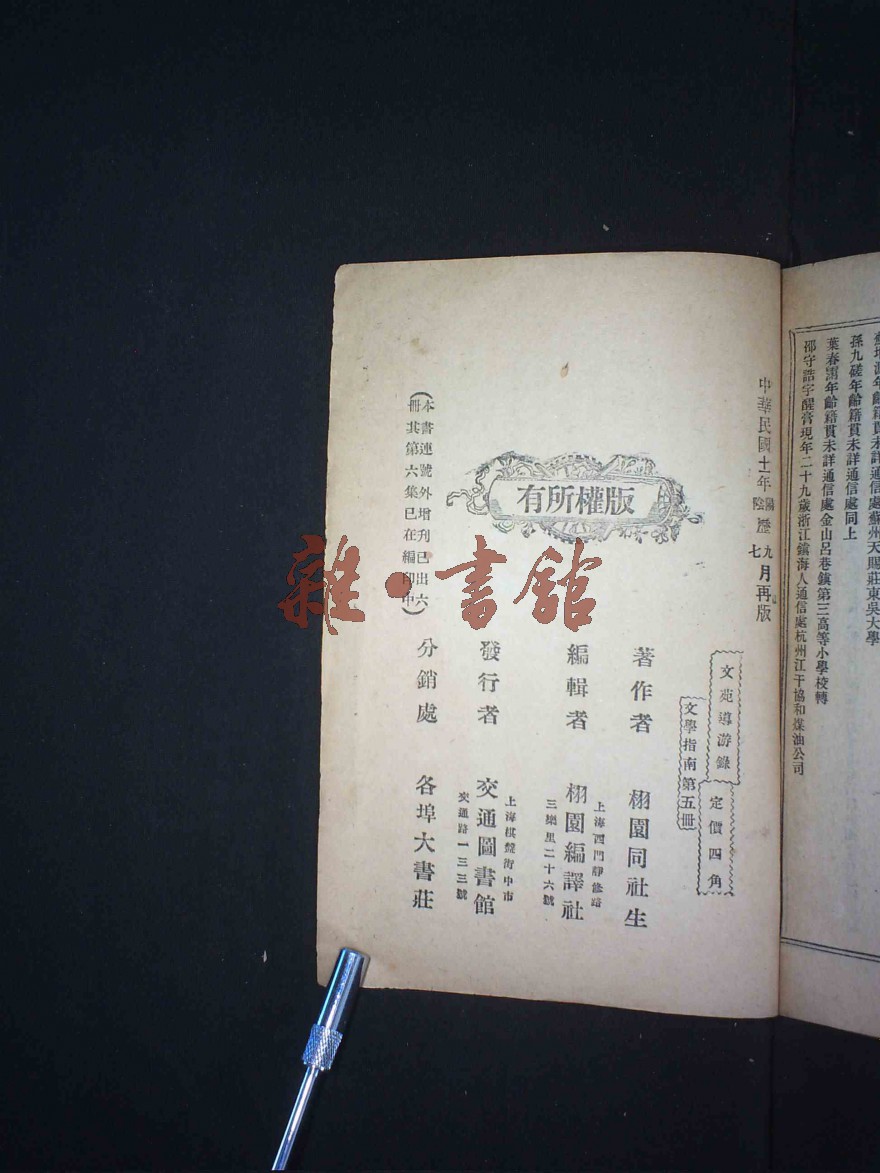 蘇州天賜莊東吳大學
孫九磋年齡籍貫未詳通信處同上
葉春霈年齡籍貫未詳通信處金山呂巷鎮第三高等小學校轉
邵守誥字醒膏現年二十九歲浙江鎮海人通信處杭州江干協和煤油公司
中華民國十一年陽陰歷九七月再版
文苑導游錄
定價四角
文學指南第五冊
版權所有
著作者 栩園同社生
編輯者 栩園編譯社
上海西門靜修路
三樂里二十六號
發行者 交通圖書館
上海棋盤街中市
交通路一三三號
分銷處 各埠大書莊
(本書連號外增刊已出六
冊其第六集已在編印中)
雜·書館